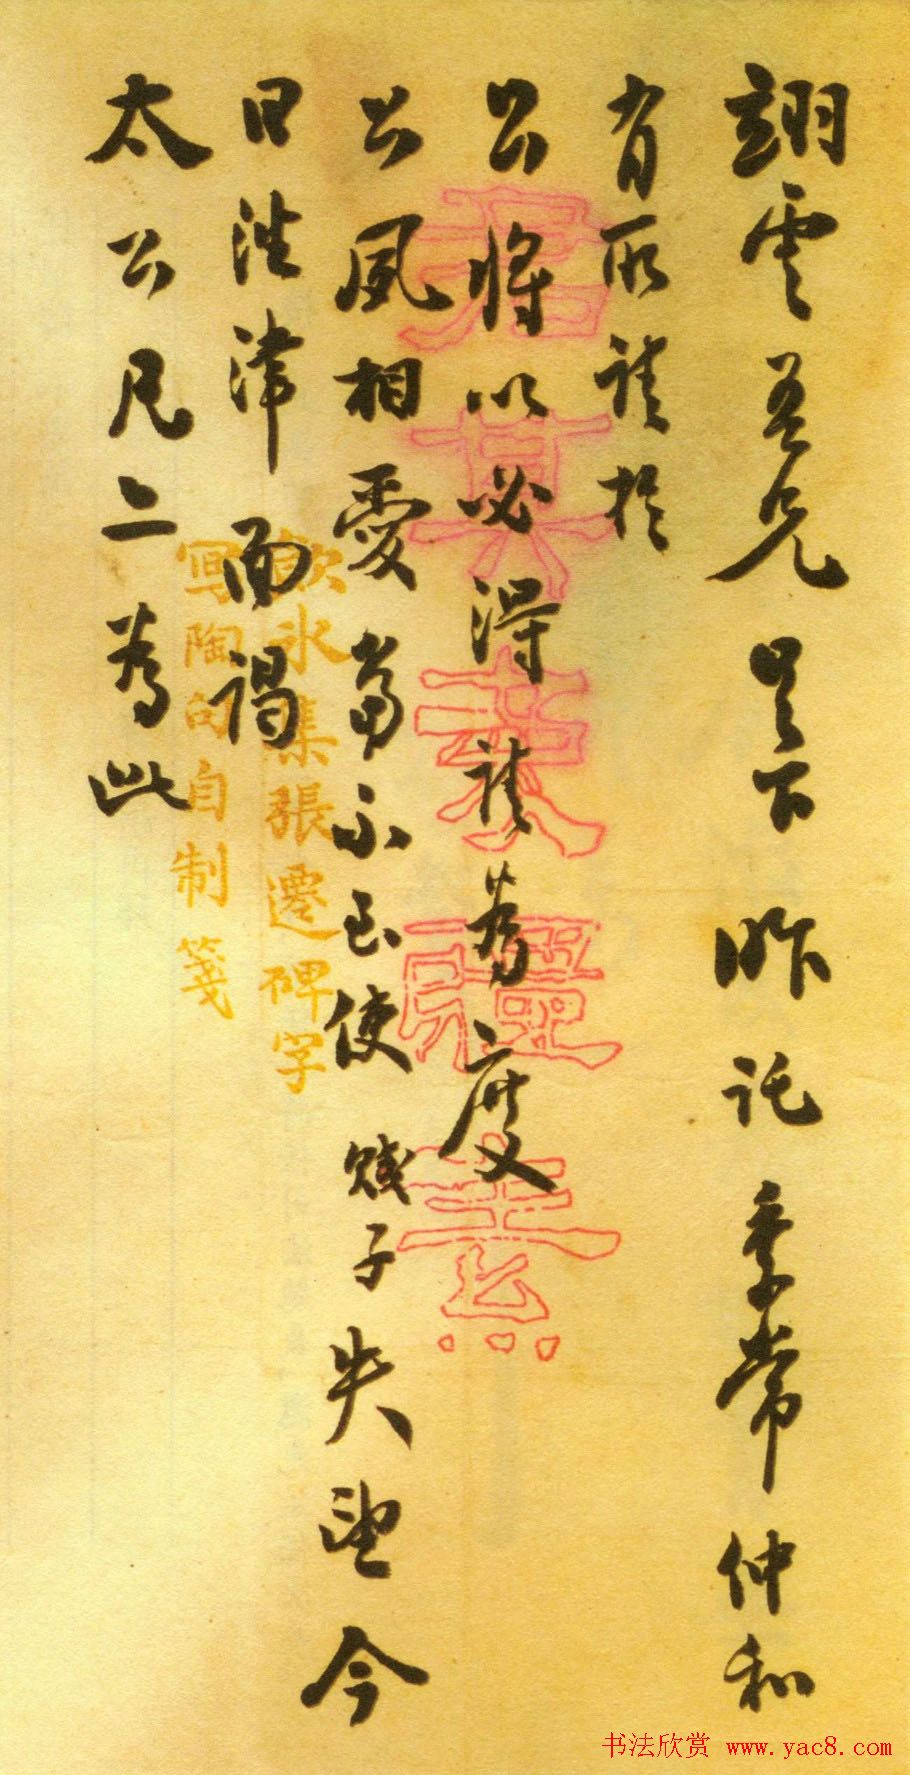 翊雲吾兄足下昨託季常仲和
有所請於
公將以必得請爲度
公夙相愛當不使賤子失望今
日往津面謁
太公爲此
君其愛體素
飲冰集張遷碑字
寫陶句自制箋
书法欣赏 www.yac8.com